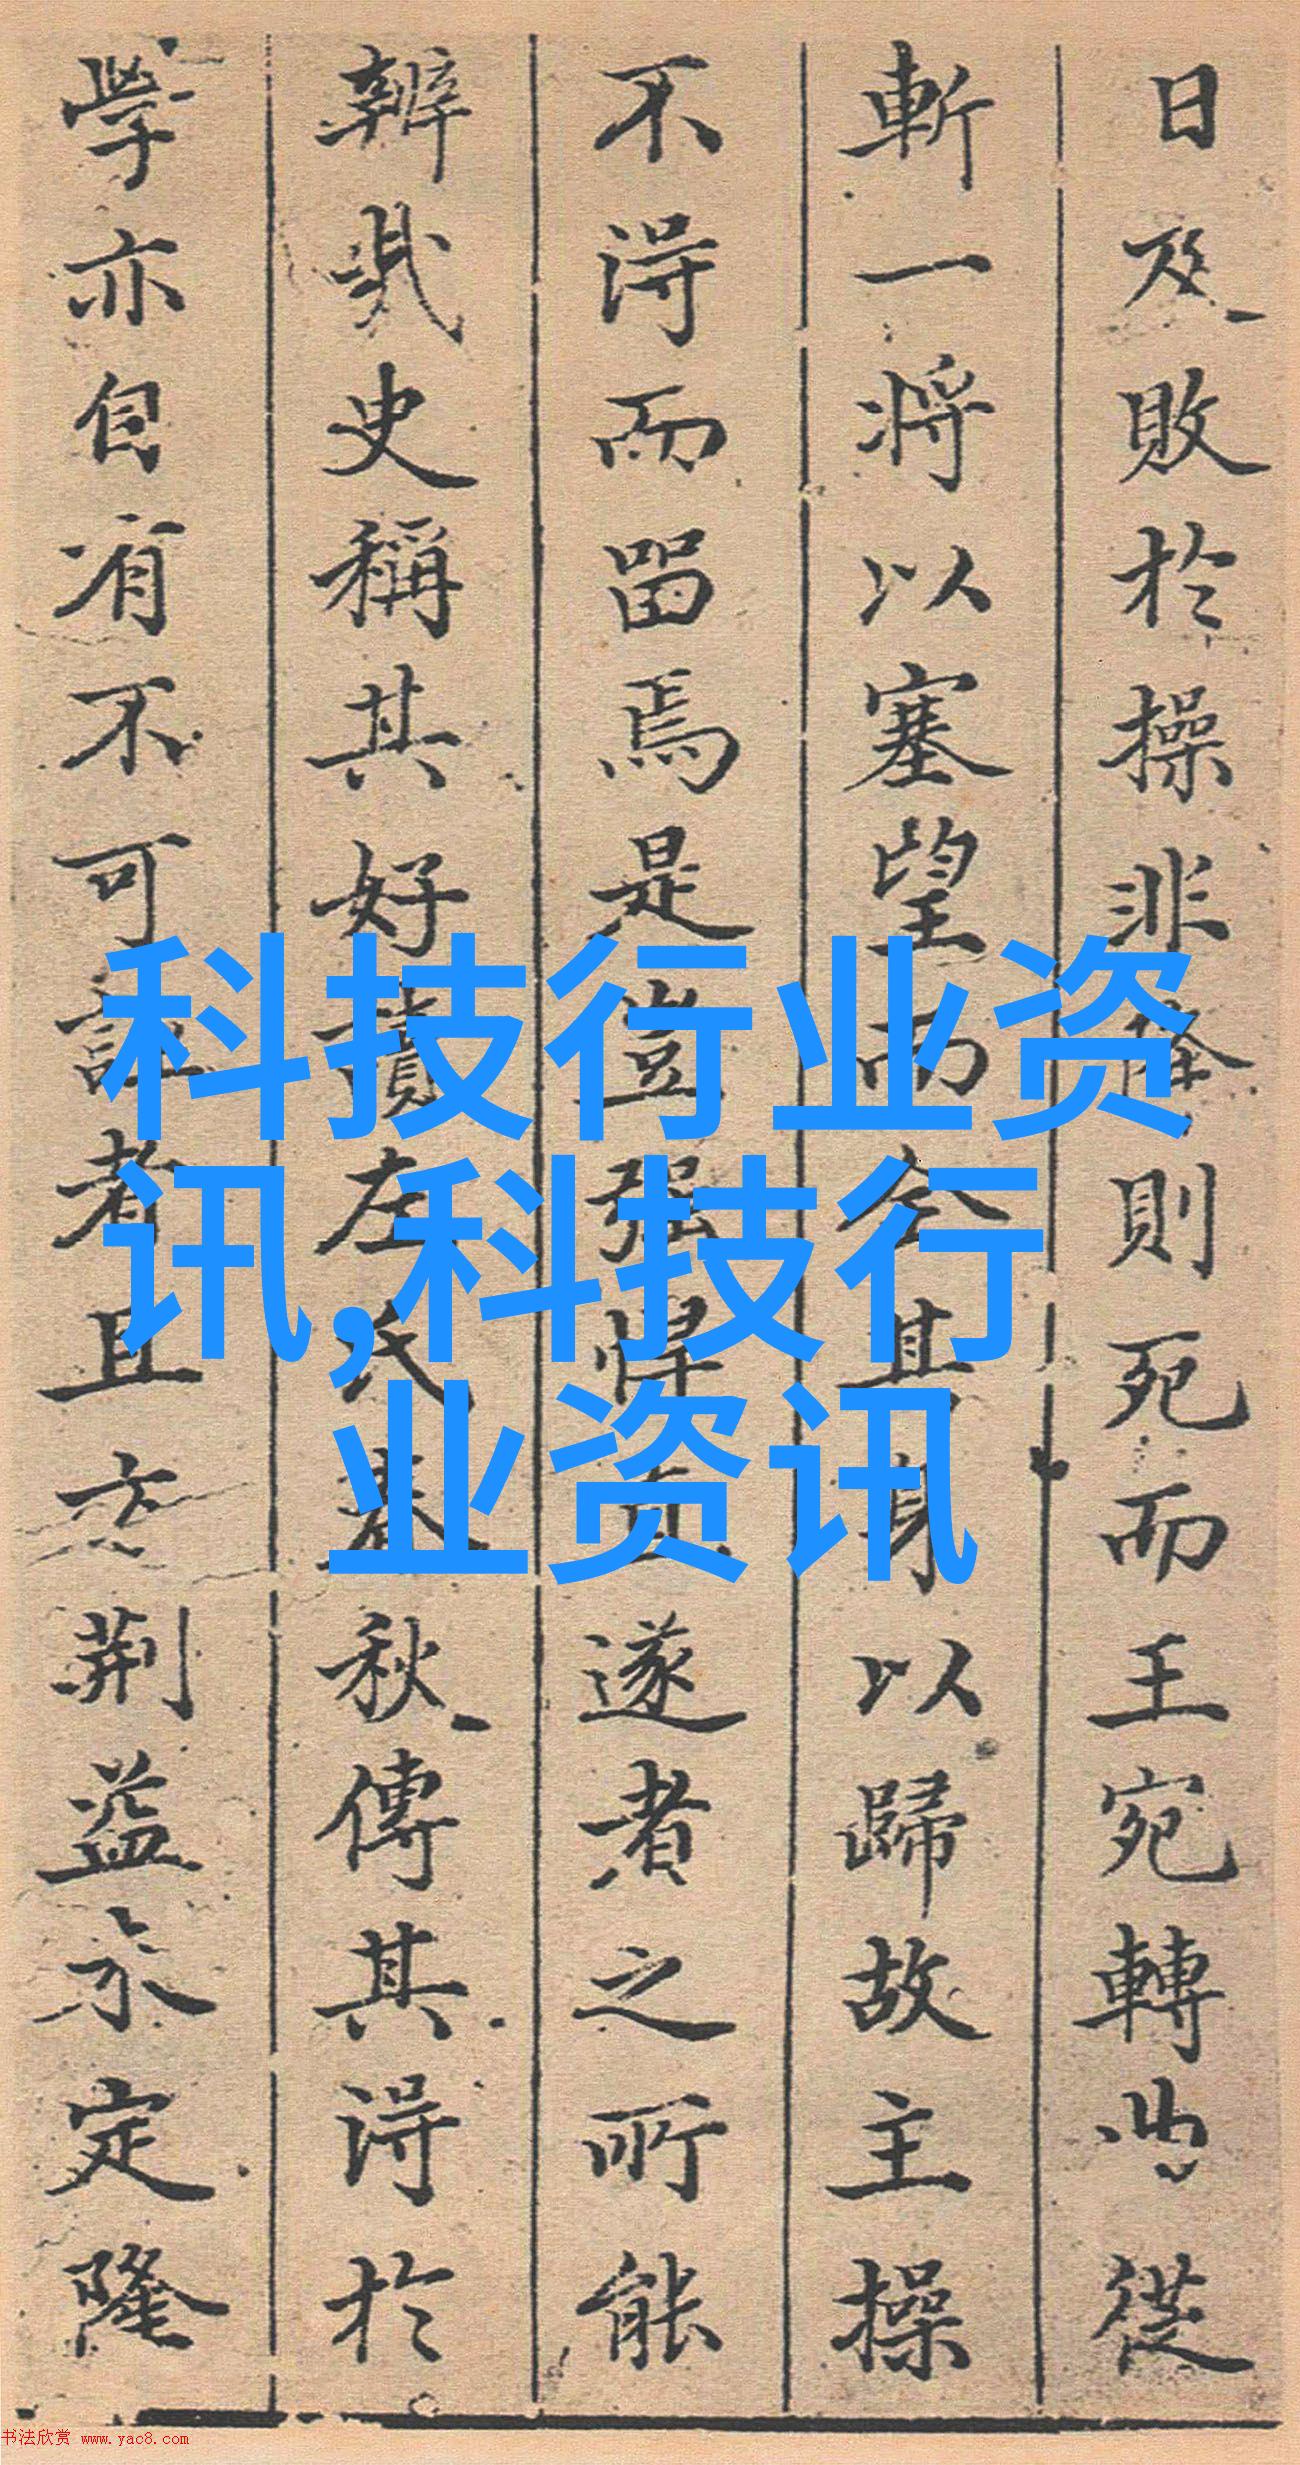 日及敗於操非降則死而王宛轉曲從
斬一將以塞望而全其身以歸故主操
不得而留焉是豈强悍直遂者之所能
辨哉史稱其好讀左氏春秋傳其得於
學亦自有不可誣者且方荆益定隆
科技行业资
讯,科技行
业资讯
书法欣赏 www.yac8.com